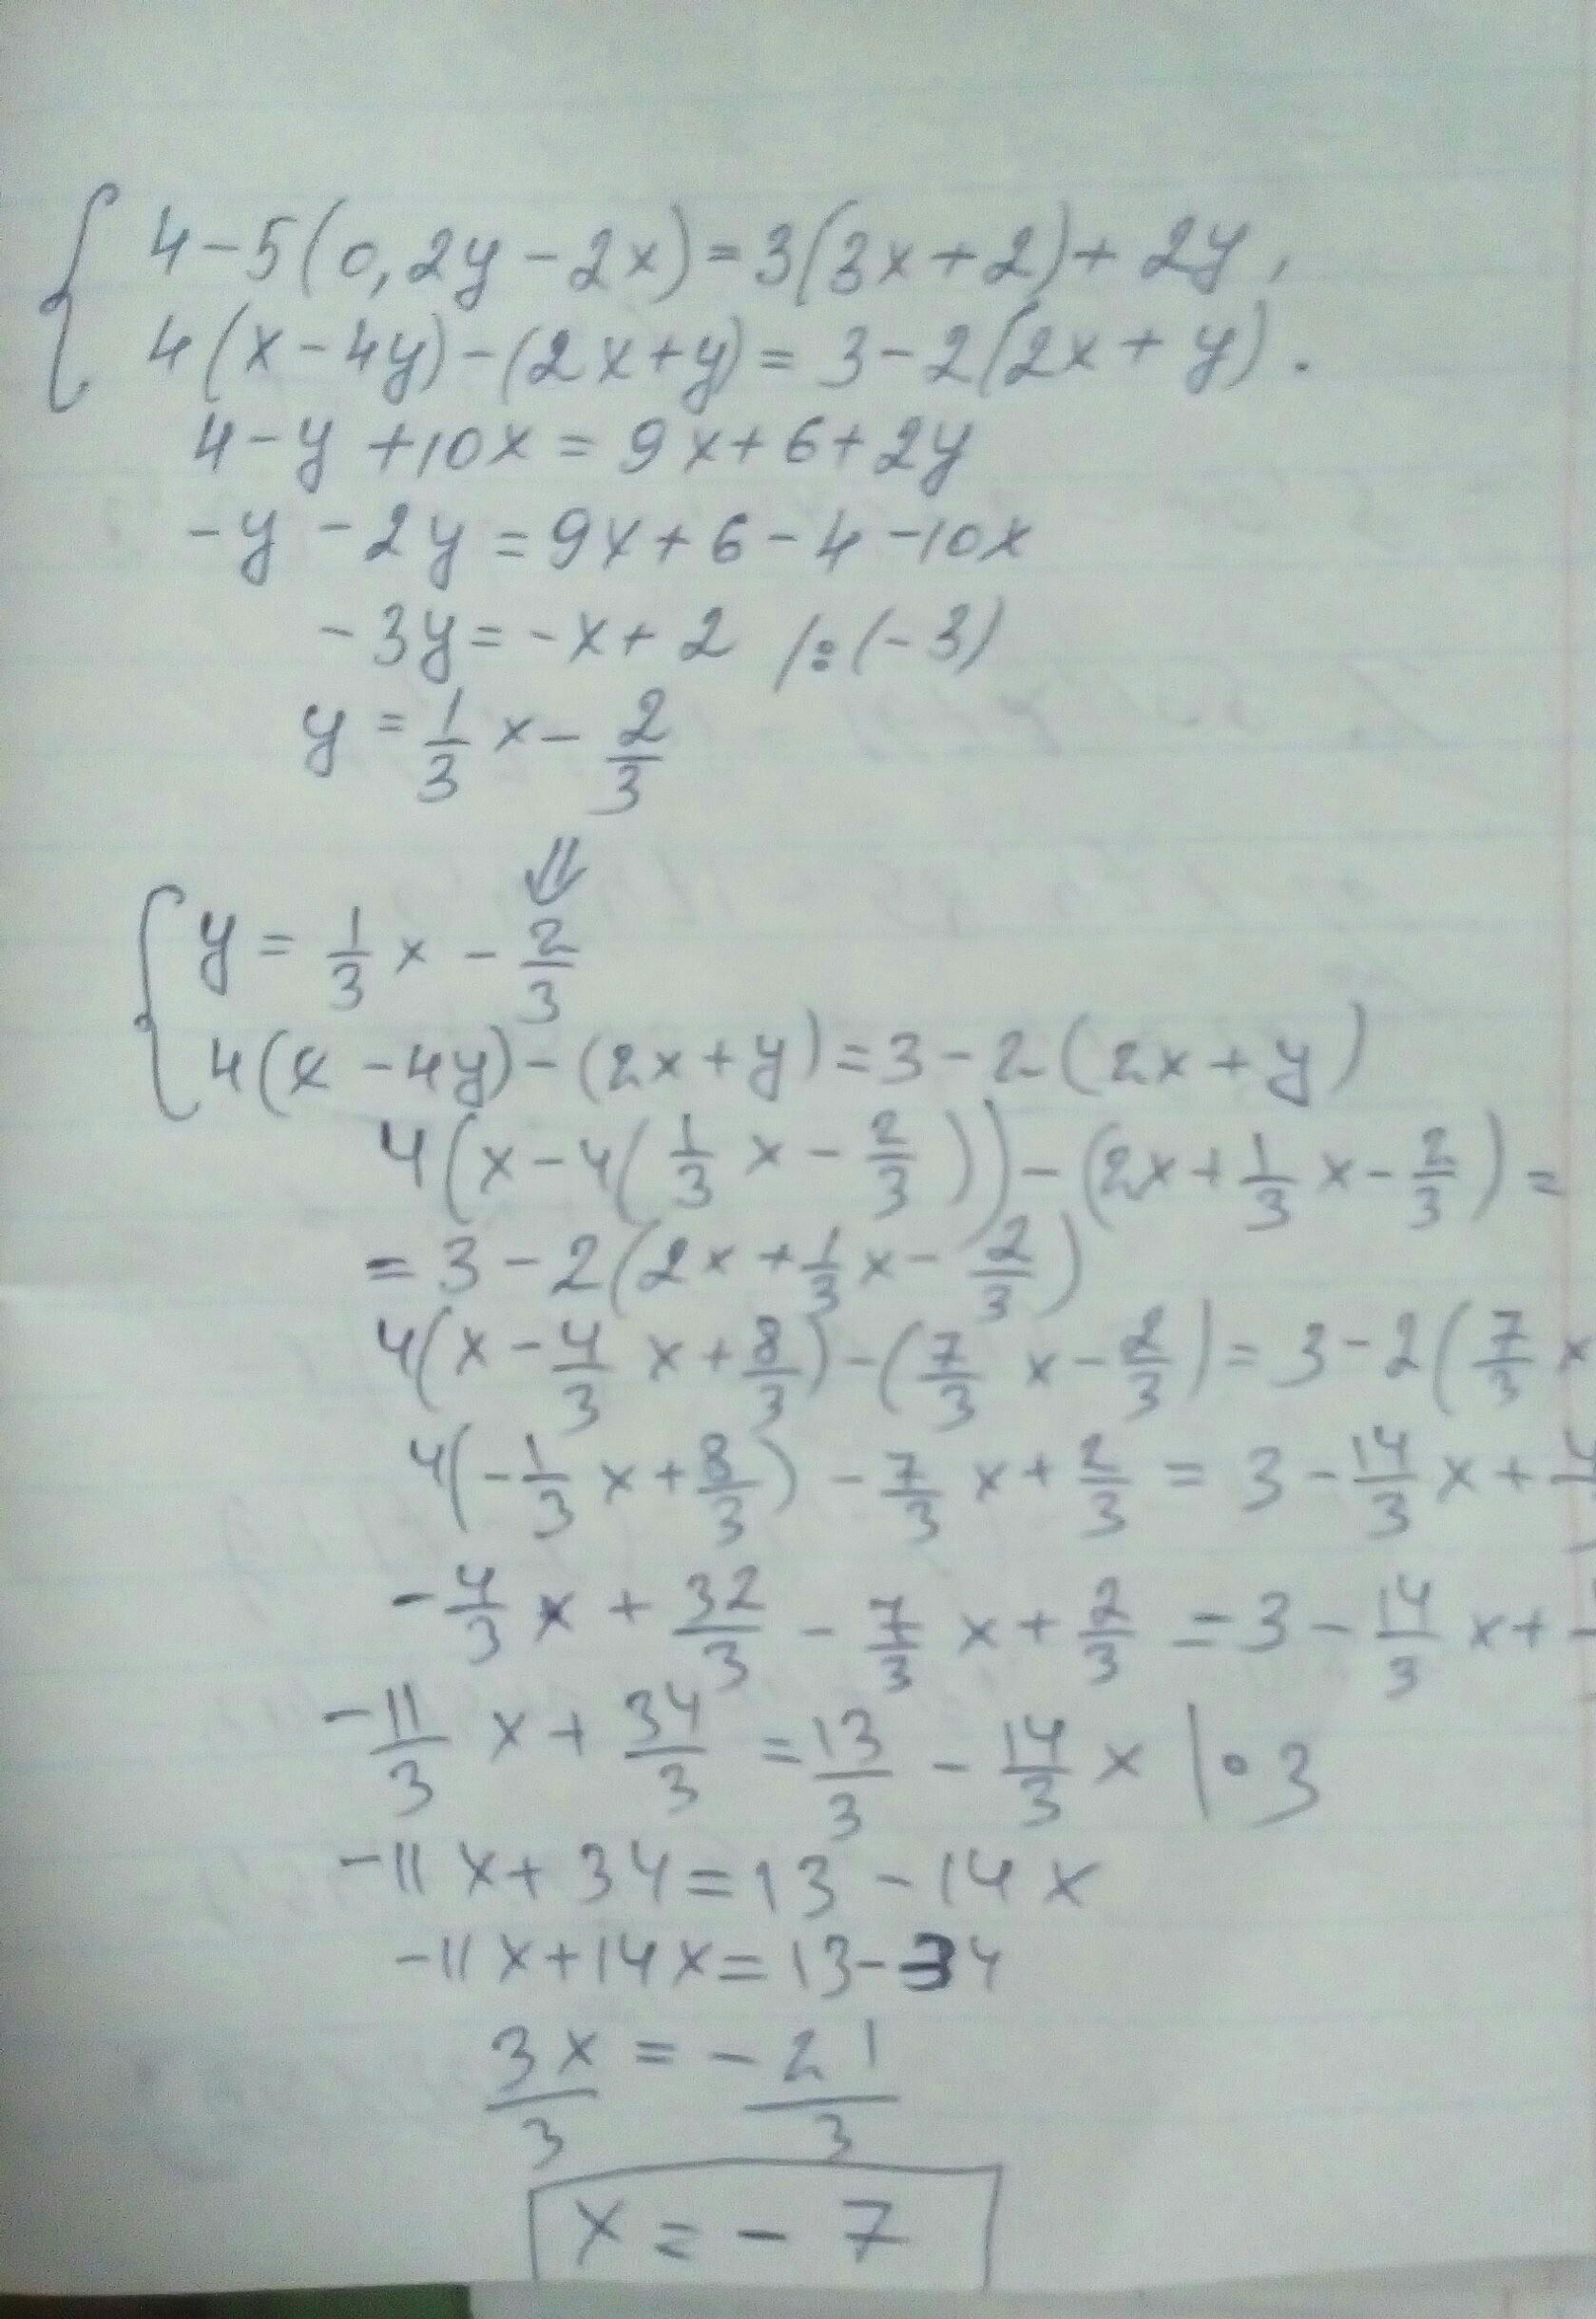 4-5(0,2y-2x)=3(3x+2)+2y,
4(x-4y)-(2x+y)=3-2(2x+y).
4-y+10x=9x+6+2y
-y-2y=9x+6-4-10x
-3y=-x+2 /:(-3)
y=1/3 x-2/3
⇓
y=1/3 x-2/3
4(x-4y)-(2x+y)=3-2(2x+y)
4(x-4(1/3 x-2/3))-(2x+1/3 x-2/3)=
=3-2(2x+1/3 x-2/3)
4(x-4/3 x+8/3)-(7/3 x-2/3)=3-2(7/3 x
4(-1/3 x+8/3)-7/3 x+2/3=3-14/3 x+
-4/3 x+32/3-7/3 x+2/3=3-14/3 x+
-11/3 x+34/3=13/3-14/3 x |•3
-11x+34=13-14x
-11x+14x=13-34
3x/3=-21/3
x=-7